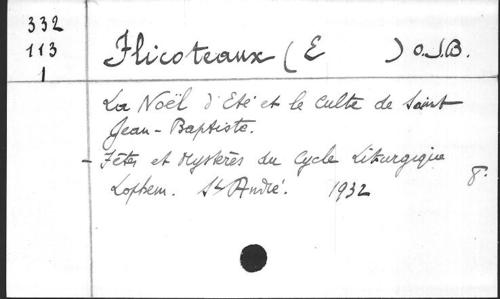 332
113
1
Flicoteaux (E ) O.S.B.
La Noël d'Eté et le Culte de Saint
Jean-Baptiste.
- Fêtes et Mystères du Cycle Liturgique
Lophem. St André. 1932 8°.